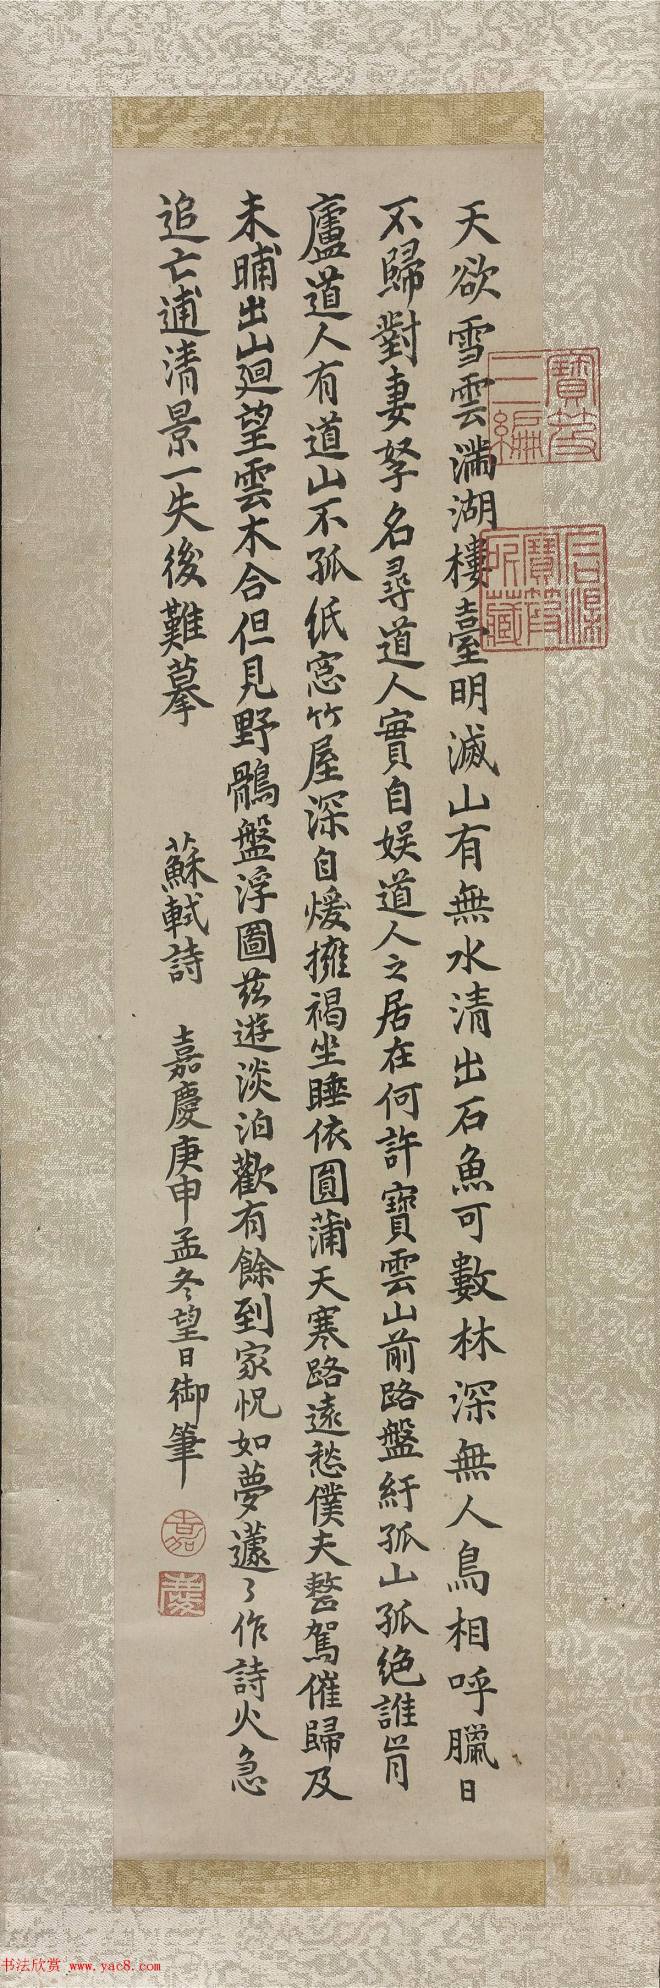 天欲雪雲滿湖樓臺明滅山有無水清出石魚可數林深無人鳥相呼臘日
不歸對妻孥名尋道人實自娛道人之居在何許寶雲山前路盤紆孤山孤絕誰肯
廬道人有道山不孤紙窓竹屋深自煖擁褐坐睡依圓蒲天寒路遠愁僕夫整駕催歸及
未晡出山迴望雲木合但見野鶻盤浮圖茲遊淡泊歡有餘到家怳如夢蘧々作詩火急
追亡逋清景一失後難摹 蘇軾詩 嘉慶庚申孟冬望日御筆
嘉
慶
寶笈
三編
石渠
寶笈
所藏
书法欣赏 www.yac8.com